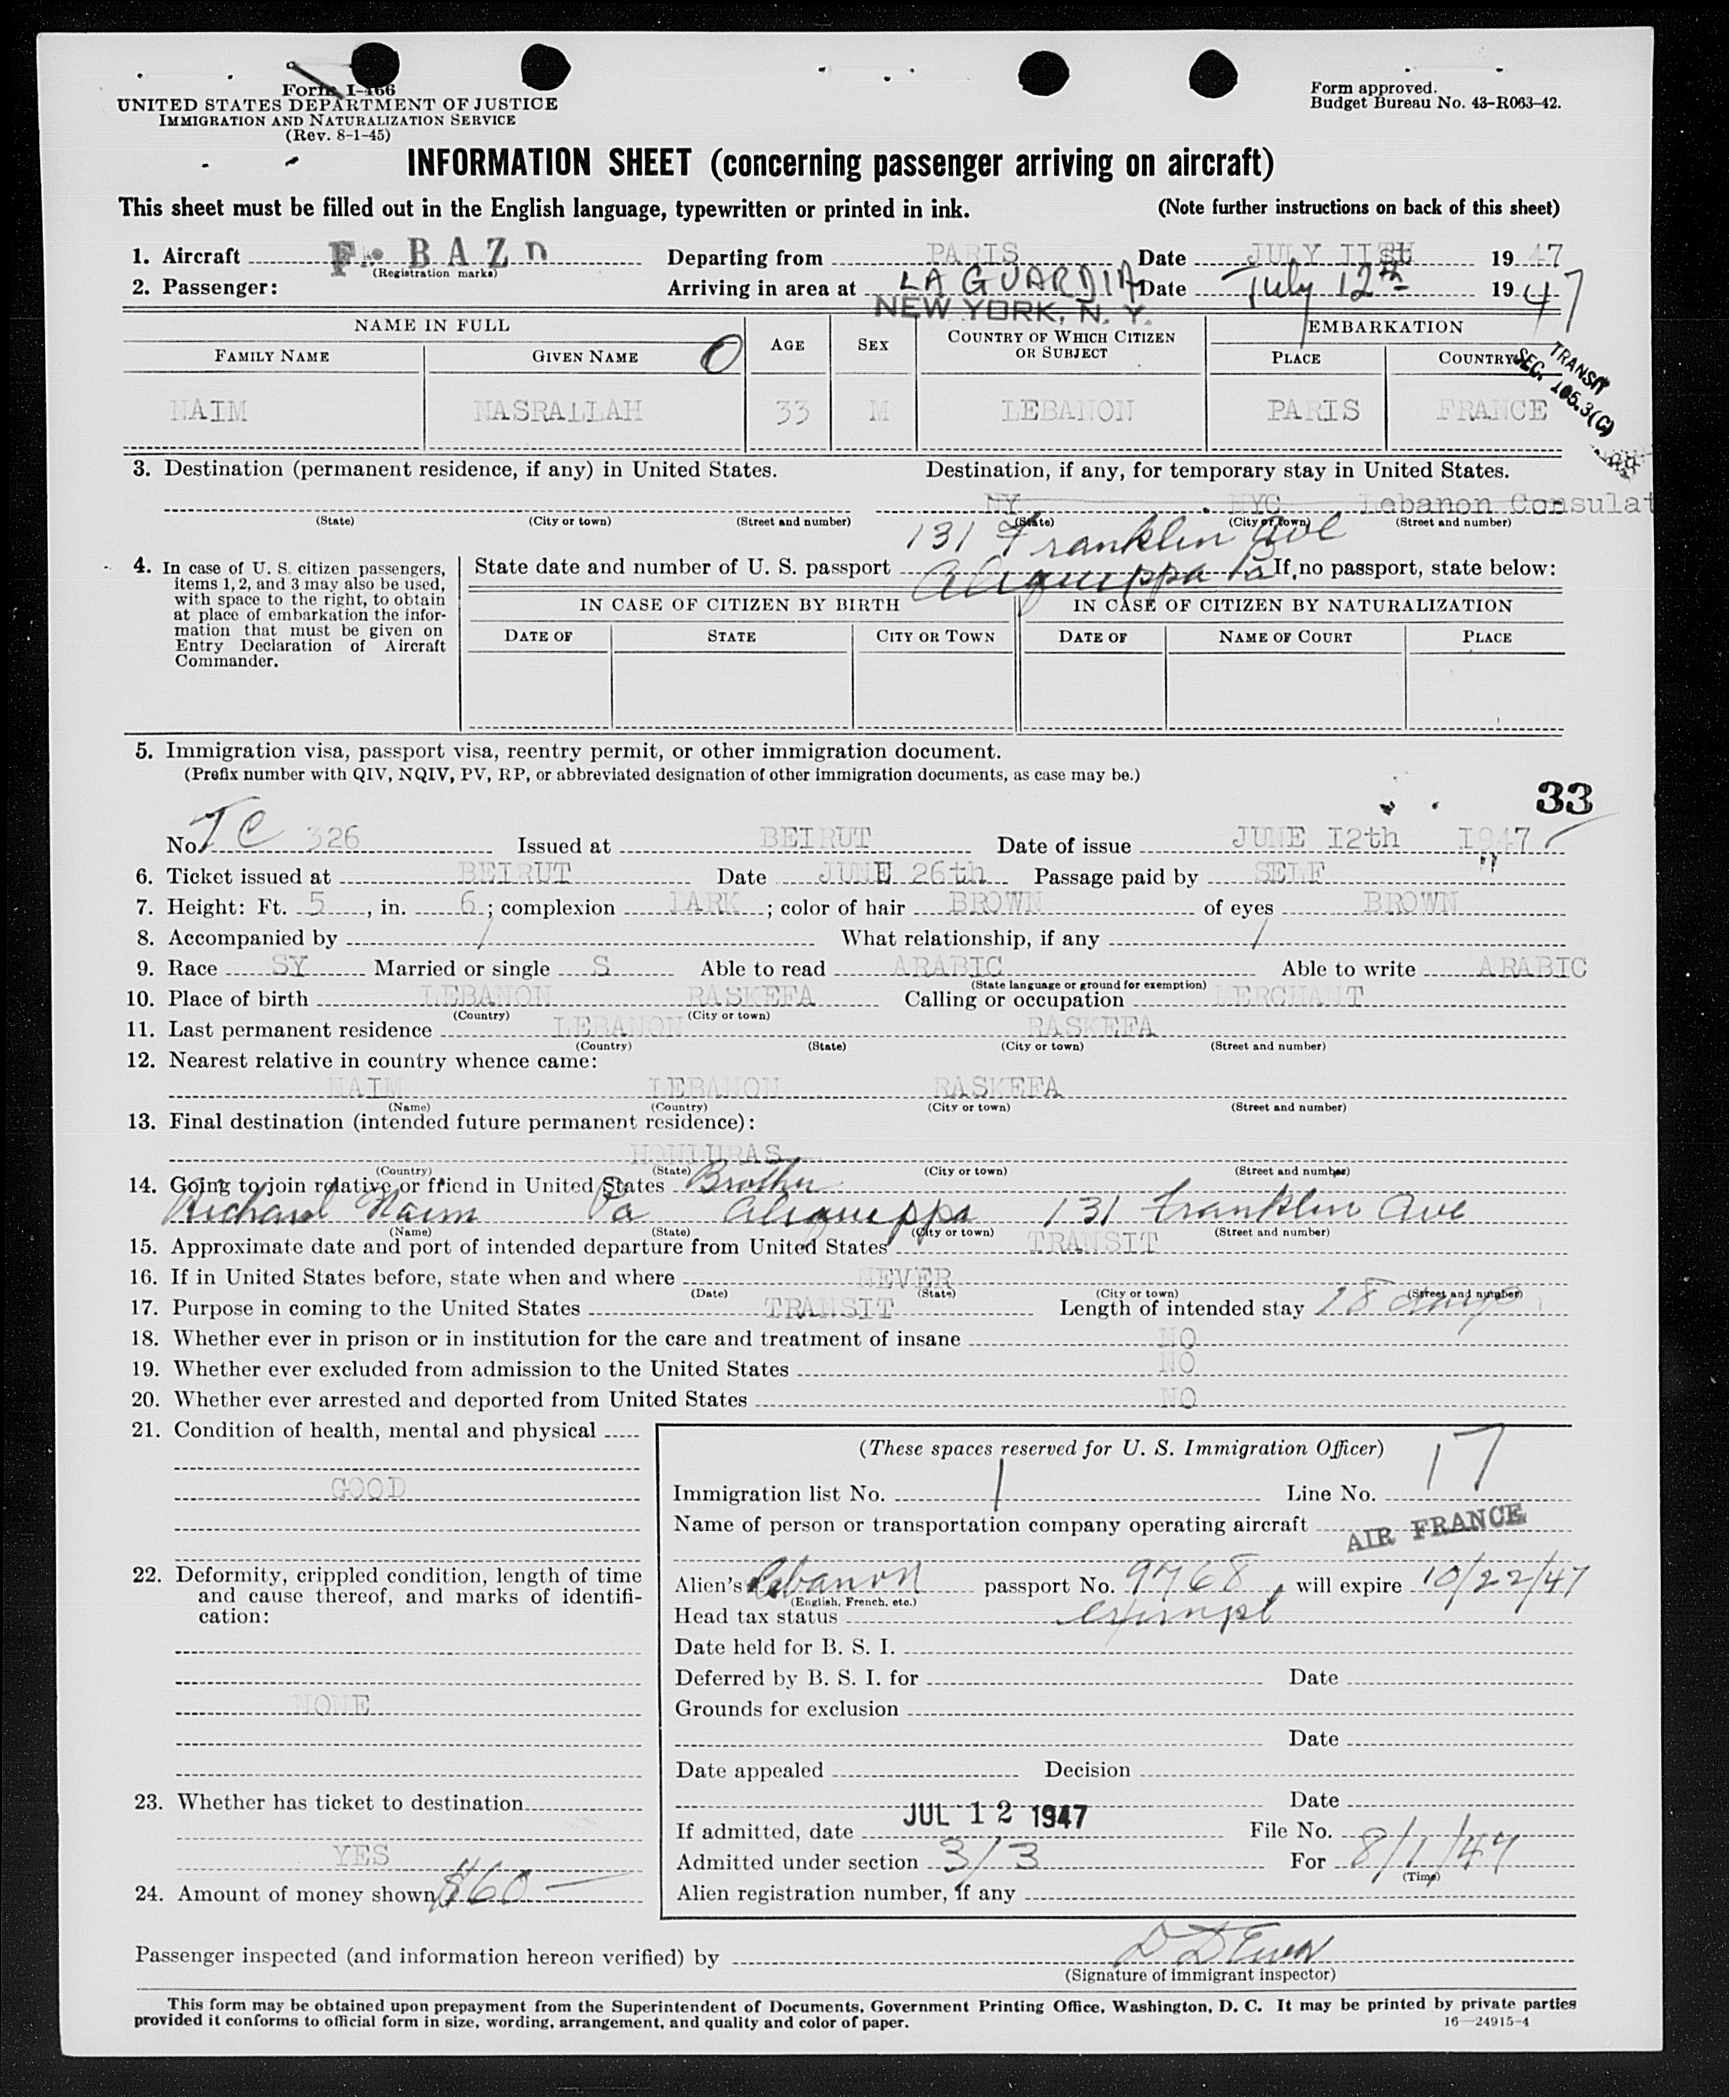 Form I-466
UNITED STATES DEPARTMENT OF JUSTICE
IMMIGRATION AND NATURALIZATION SERVICE
(Rev. 8-1-45)
Form approved.
Budget Bureau No. 43-R063-42.
INFORMATION SHEET (concerning passenger arriving on aircraft)
This sheet must be filled out in the English language, typewritten or printed in ink. (Note further instructions on back of this sheet)
1. Aircraft F BAZD Departing from PARIS Date JULY 11th 1947
(Registration marks)
2. Passenger: Arriving in area at LA GUARDIA Date July 12th 1947
NEW YORK, N. Y.
NAME IN FULL AGE SEX COUNTRY OF WHICH CITIZEN OR SUBJECT EMBARKATION
FAMILY NAME GIVEN NAME O PLACE COUNTRY
TRANSIT
SEC. 105.3(C)
NAIM NASRALLAH 33 M LEBANON PARIS FRANCE
3. Destination (permanent residence, if any) in United States. Destination, if any, for temporary stay in United States.
NY NYC Lebanon Consulat
(State) (City or town) (Street and number) (State) (City or town) (Street and number)
131 Franklin Ave
Aliquippa Pa
4. In case of U. S. citizen passengers, items 1, 2, and 3 may also be used, with space to the right, to obtain at place of embarkation the information that must be given on Entry Declaration of Aircraft Commander.
State date and number of U. S. passport If no passport, state below:
IN CASE OF CITIZEN BY BIRTH IN CASE OF CITIZEN BY NATURALIZATION
DATE OF STATE CITY OR TOWN DATE OF NAME OF COURT PLACE
5. Immigration visa, passport visa, reentry permit, or other immigration document.
(Prefix number with QIV, NQIV, PV, RP, or abbreviated designation of other immigration documents, as case may be.)
33
No. TC 326 Issued at BEIRUT Date of issue JUNE 12th 1947
6. Ticket issued at BEIRUT Date JUNE 26th Passage paid by SELF
7. Height: Ft. 5, in. 6; complexion DARK; color of hair BROWN of eyes BROWN
8. Accompanied by / What relationship, if any /
9. Race SY Married or single S Able to read ARABIC Able to write ARABIC
(State language or ground for exemption)
10. Place of birth LEBANON RASKEFA Calling or occupation MERCHANT
(Country) (City or town)
11. Last permanent residence LEBANON RASKEFA
(Country) (State) (City or town) (Street and number)
12. Nearest relative in country whence came:
NAIM LEBANON RASKEFA
(Name) (Country) (City or town) (Street and number)
13. Final destination (intended future permanent residence):
HONDURAS
(Country) (State) (City or town) (Street and number)
14. Going to join relative or friend in United States Brother
Richard Naim Pa Aliquippa 131 Franklin Ave
(Name) (State) (City or town) (Street and number)
15. Approximate date and port of intended departure from United States TRANSIT
16. If in United States before, state when and where NEVER
(Date) (State) (City or town) (Street and number)
17. Purpose in coming to the United States TRANSIT Length of intended stay 18 days
18. Whether ever in prison or in institution for the care and treatment of insane NO
19. Whether ever excluded from admission to the United States NO
20. Whether ever arrested and deported from United States NO
21. Condition of health, mental and physical
GOOD
22. Deformity, crippled condition, length of time and cause thereof, and marks of identification:
NONE
23. Whether has ticket to destination
YES
24. Amount of money shown $60
(These spaces reserved for U. S. Immigration Officer)
Immigration list No. 1 Line No. 17
Name of person or transportation company operating aircraft AIR FRANCE
Alien's Lebanon passport No. 9768, will expire 10/22/47
(English, French, etc.)
Head tax status exempt
Date held for B. S. I.
Deferred by B. S. I. for Date
Grounds for exclusion
Date
Date appealed Decision
Date
If admitted, date JUL 12 1947 File No.
Admitted under section 3/3 For 8/1/47
(Time)
Alien registration number, if any
Passenger inspected (and information hereon verified) by
(Signature of immigrant inspector)
This form may be obtained upon prepayment from the Superintendent of Documents, Government Printing Office, Washington, D. C. It may be printed by private parties
provided it conforms to official form in size, wording, arrangement, and quality and color of paper. 16—24915-4